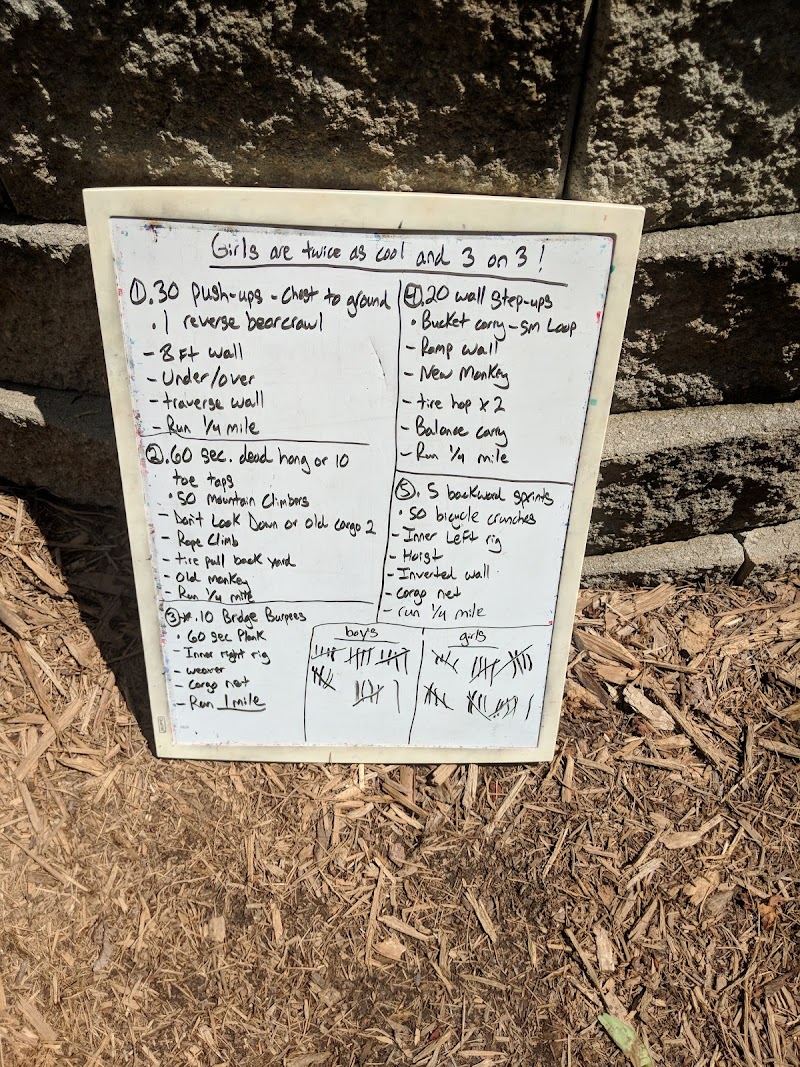 Girls are twice as cool and 3 on 3!
①.30 push-ups - Chest to ground
• 1 reverse bearcrawl
- 8 Ft wall
- Under/over
- traverse wall
- Run 1/4 mile
②.60 sec. dead hang or 10
toe taps
• 50 Mountain Climbers
- Don't Look Down or old cargo 2
- Rope Climb
- tire pull back yard
- old monkey
- Run 1/4 mile
③*.10 Bridge Burpees
• 60 sec Plank
- Inner right rig
- weaver
- Cargo net
- Run 1 mile
④.20 wall step-ups
• Bucket carry - sm Loop
- Ramp wall
- New Monkey
- tire hop x 2
- Balance carry
- Run 1/4 mile
⑤. 5 backward sprints
• 50 bicycle crunches
- Inner Left rig
- Hoist
- Inverted wall
- cargo net
- run 1/4 mile
boys
girls